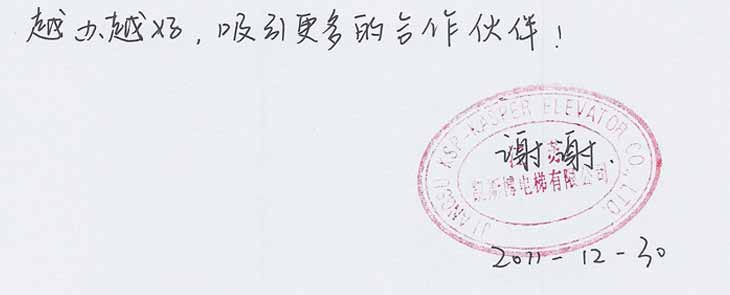 越办越好，吸引更多的合作伙伴！
JIANGSU KSP-KASPER ELEVATOR CO., LTD.
江苏
谢谢.
凯斯博电梯有限公司
2011-12-30